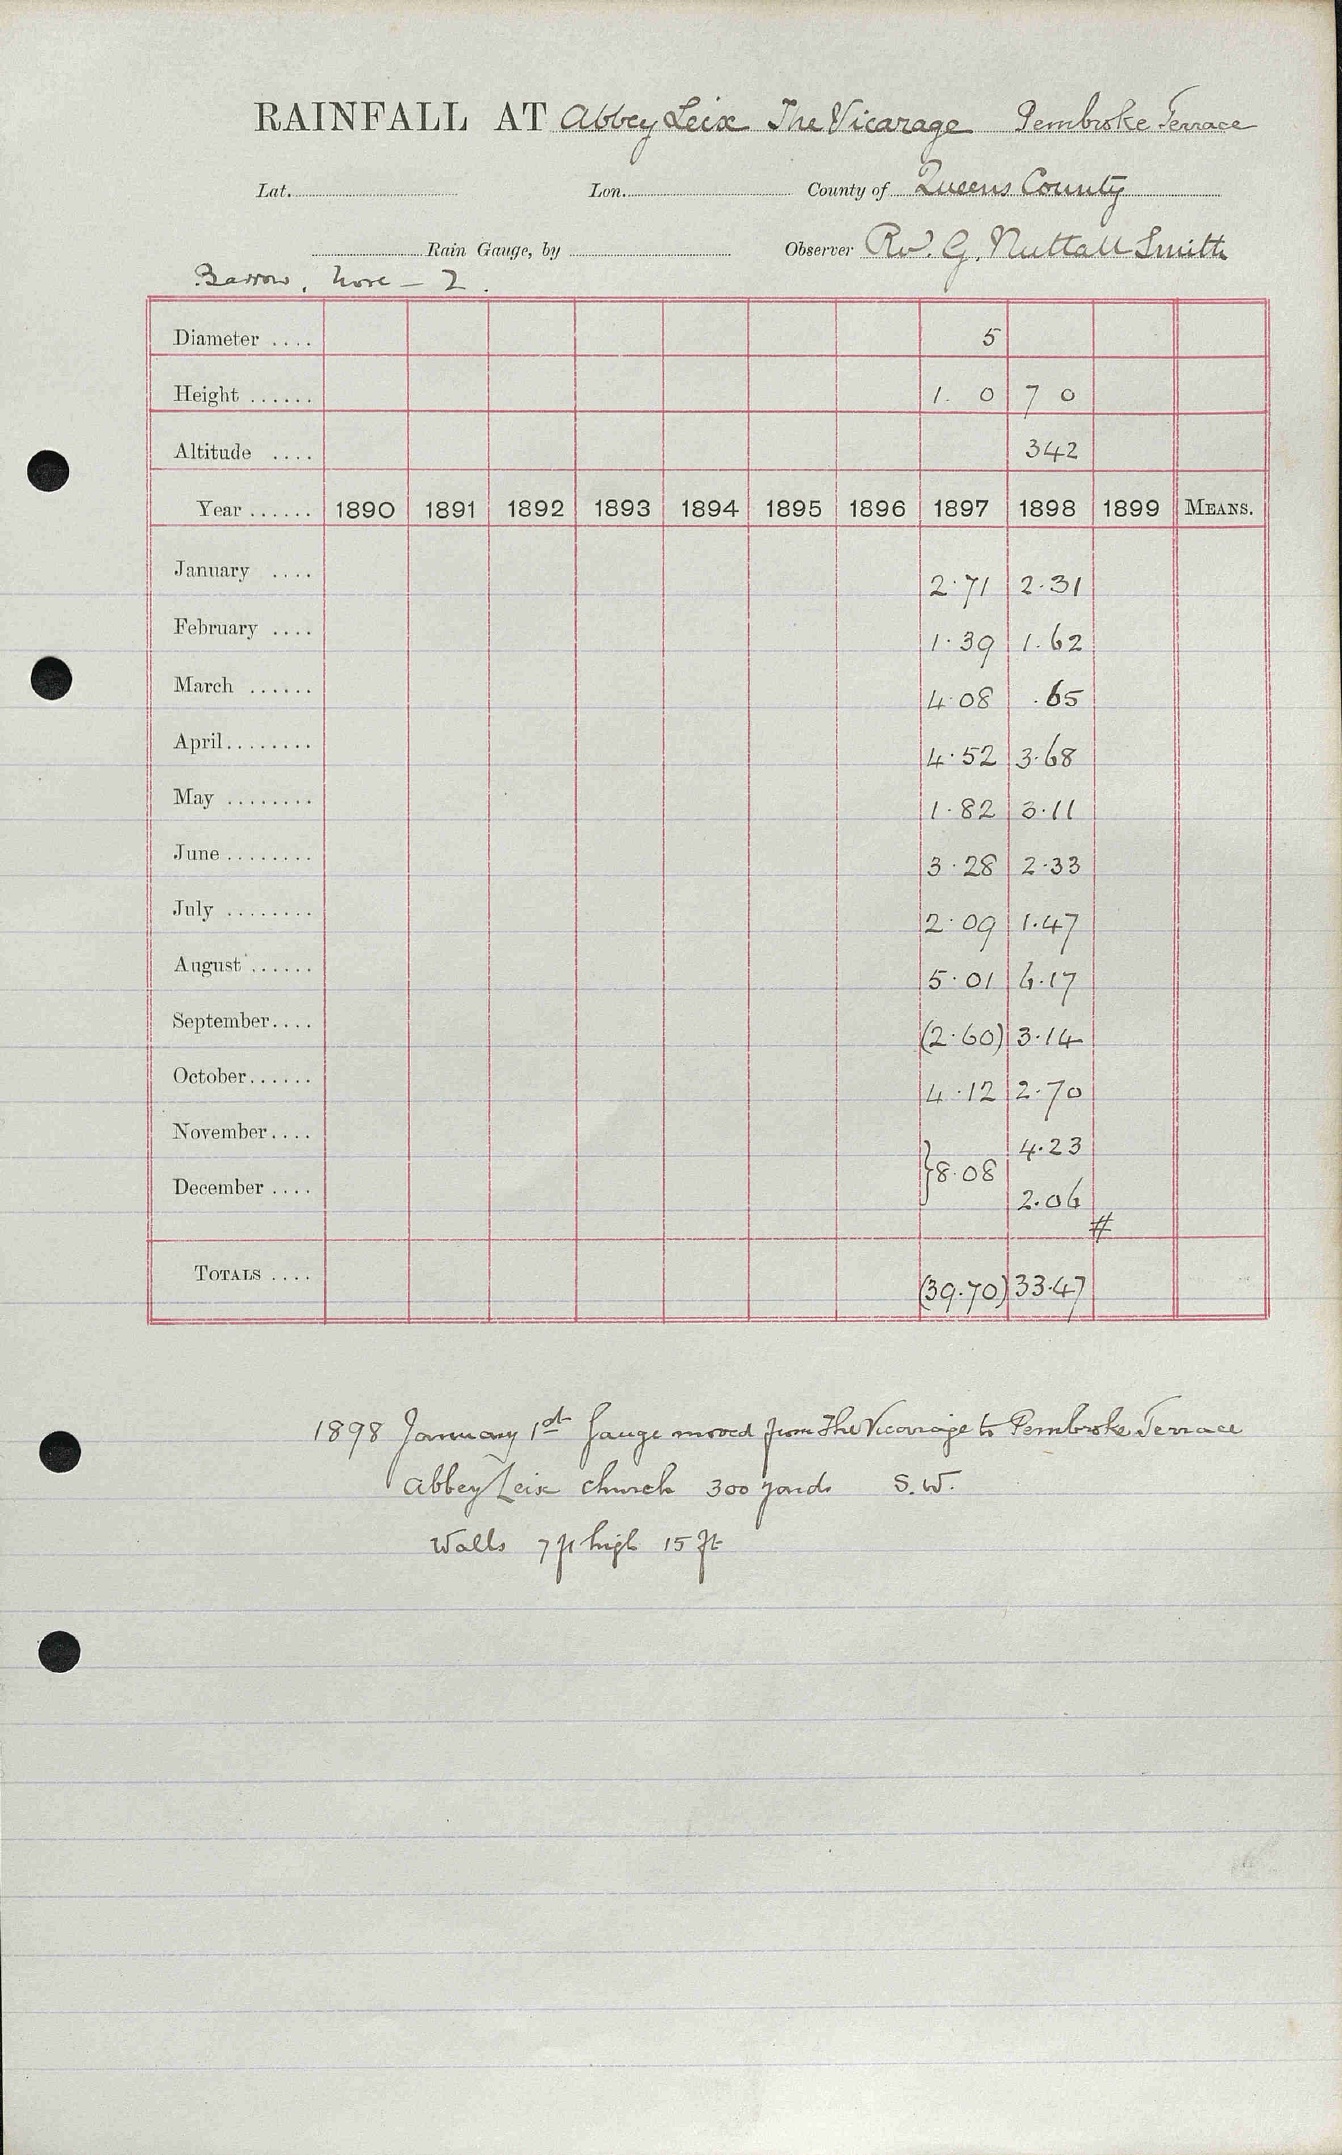 RAINFALL AT Abbey Leix The Vicarage Pembroke Terrace
Lat. Lon. County of Queens County
Rain Gauge, by Observer Rev. G. Nuttall Smith
Barrow, Nore - 2.
Diameter .... 5
Height ...... 1. 0 7 0
Altitude .... 342
Year ...... 1890 1891 1892 1893 1894 1895 1896 1897 1898 1899 MEANS.
January .... 2.71 2.31
February .... 1.39 1.62
March ...... 4.08 .65
April........ 4.52 3.68
May ........ 1.82 3.11
June ........ 3.28 2.33
July ........ 2.09 1.47
August ...... 5.01 6.17
September.... (2.60) 3.14
October...... 4.12 2.70
November.... 4.23
} 8.08
December .... 2.06
#
TOTALS .... (39.70) 33.47
1898 January 1st Gauge moved from The Vicarage to Pembroke Terrace
Abbey Leix church 300 yards S.W.
Walls 7 ft high 15 ft